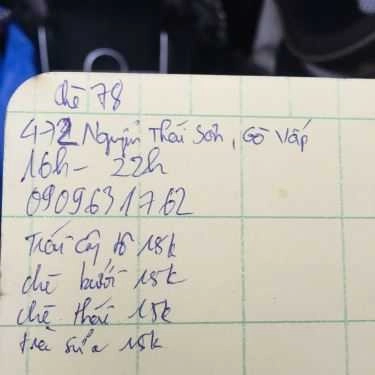 chè 78
472 Nguyễn Thái Sơn, Gò Vấp
16h - 22h
0909631762
Trái cây tô 15k
chè bưởi 15k
chè thái 15k
trà sữa 15k